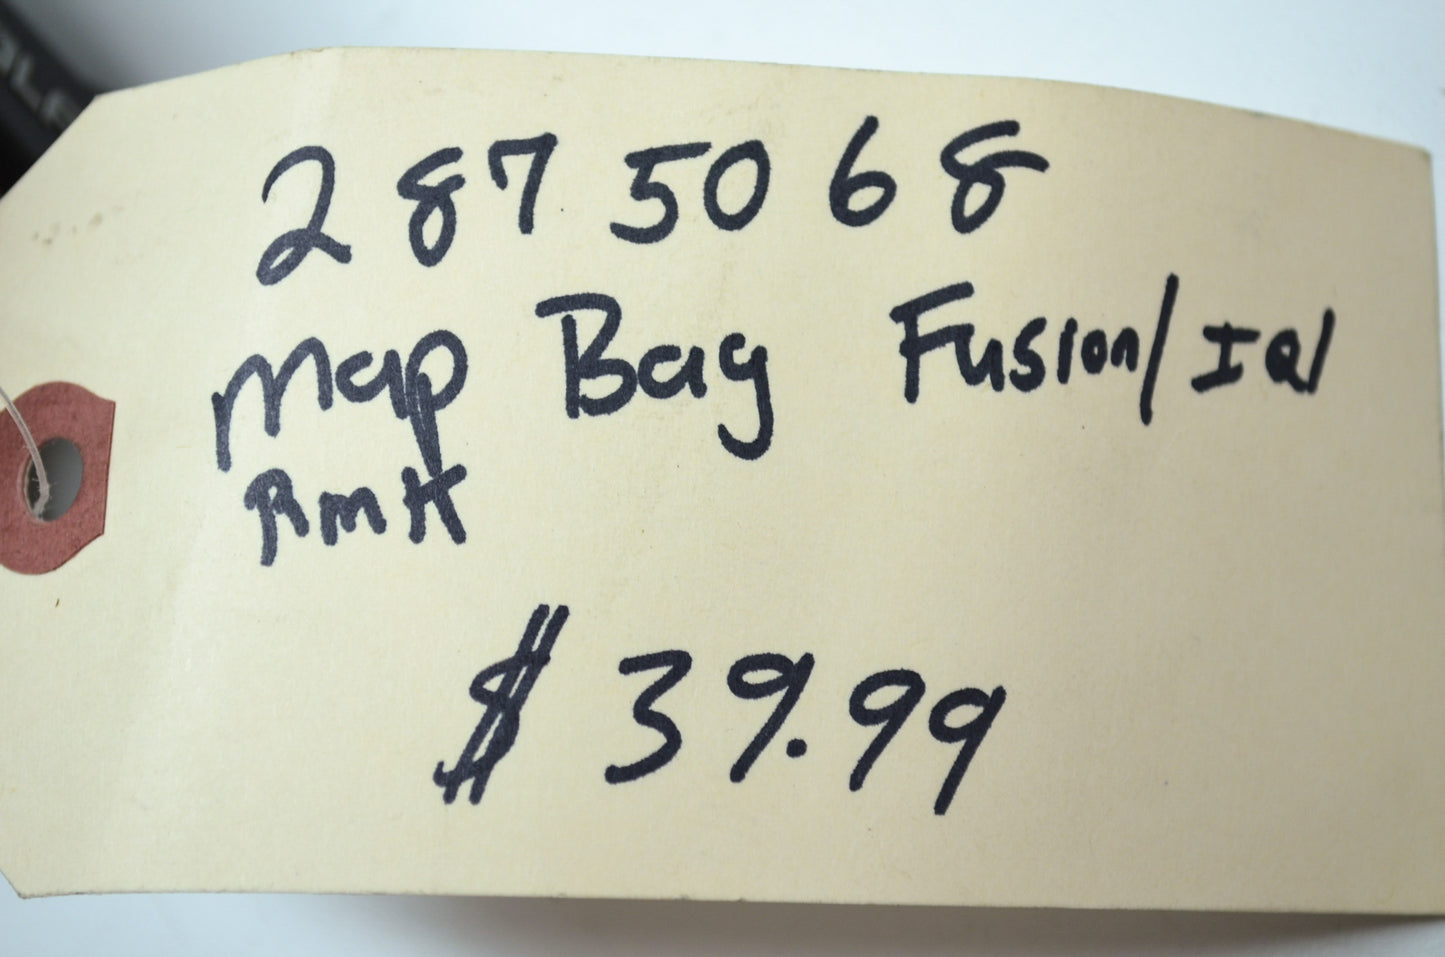 2875068
Map Bag Fusion/IQ/
RMK
$39.99